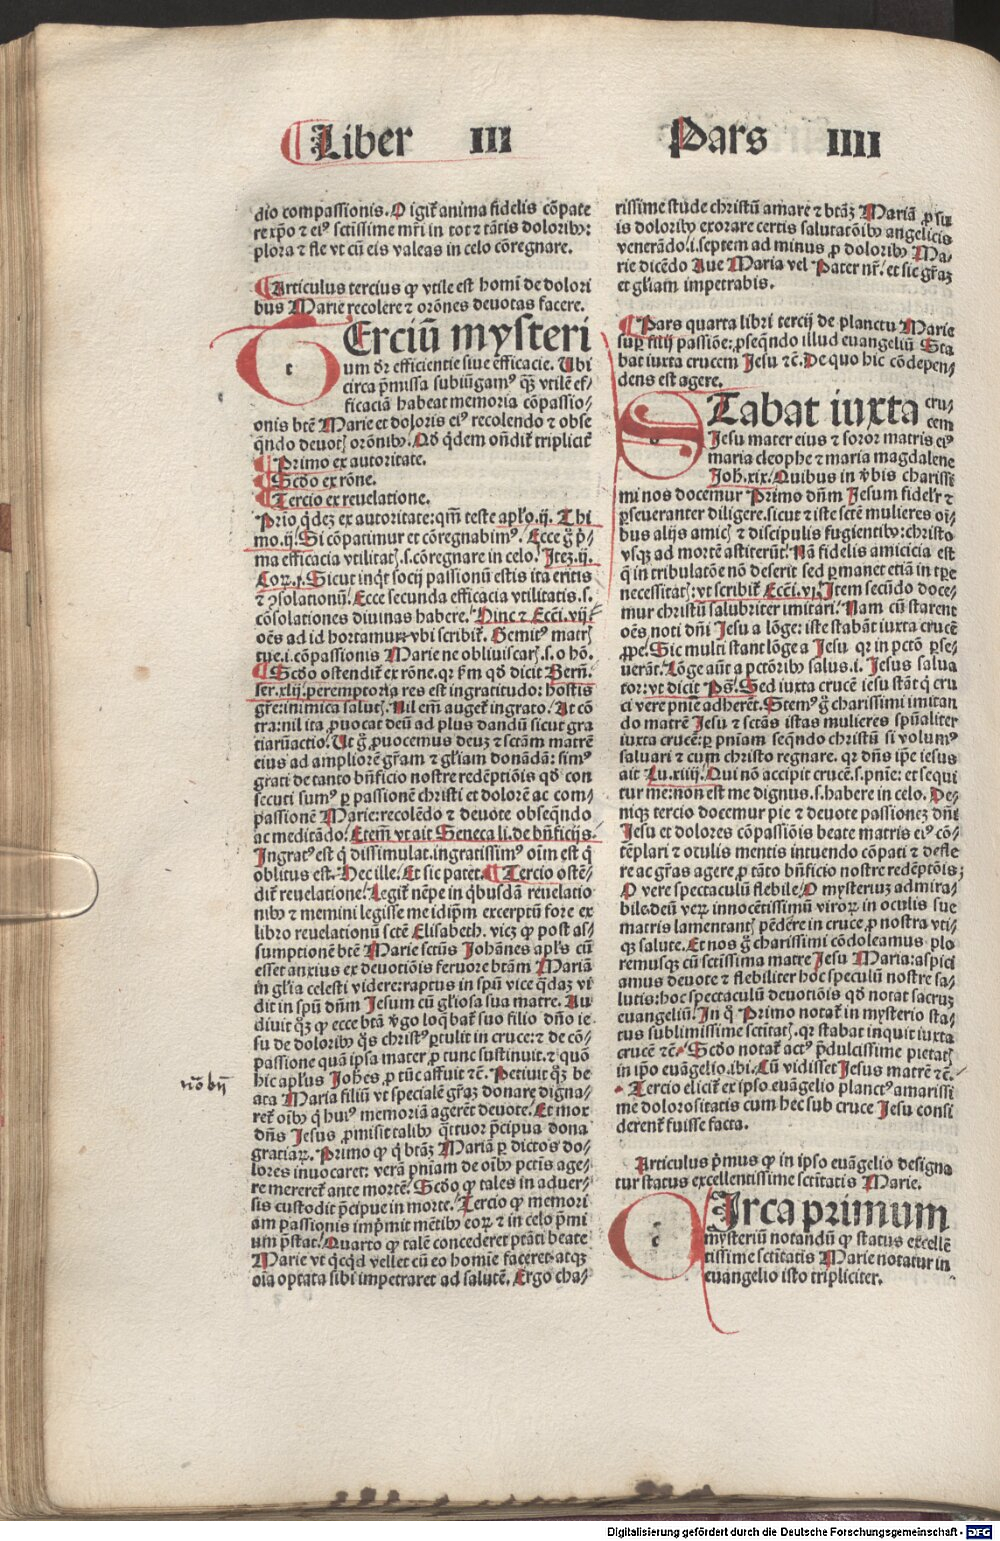 Liber III Pars IIII
dio compassionis. O igit᷑ anima fidelis cõpate
re xp̃o ⁊ ei⁹ sctissime mr̃i in tot ⁊ tãtis dolorib⁹:
plora ⁊ fle vt cũ eis valeas in celo cõregnare.
Articulus tercius ꝙ vtile est homĩ de dolori
bus Marie recolere ⁊ orõnes deuotas facere.
t
TErciũ mysteri
um dr̃ efficientie siue efficacie. Ubi
circa p̃missa subiũgam⁹ ꝙ̃ vtilẽ ef⸗
ficaciã habeat memoria cõpassio⸗
onis btẽ Marie et doloris ei⁹ recolendo ⁊ obse
q̃ndo deuotꝭ orõnib⁹. Qd̃ q̃dem oñdit᷑ triplicit᷑
Primo ex autoritate.
Scd̃o ex rõne.
Tercio ex reuelatione.
Prĩo q̃dez ex autoritate: qm̃ teste apl̃o .ij. Thi
mo.ij. Si cõpatimur et cõregnabim⁹. Ecce g̃ p̃⸗
ma efficacia vtilitatꝭ.s.cõregnare in celo. Itez.ij.
Cor.j. Sicut inq̃t socij passionũ estis ita eritis
⁊ ɔsolationũ. Ecce secunda efficacia vtilitatis.s.
cõsolationes diuinas habere. Hinc ⁊ Ecci̇.vij⸗
oẽs ad id hortamur vbi scribit᷑. Gemit⁹ matrꝭ
tue.i.cõpassionis Marie ne obliuiscarꝭ.s.o hõ.
Scd̃o ostendit᷑ ex rõne. qr p̃m qd̃ dicit Berñ.
ser.xlij. peremptoria res est ingratitudo: hostis
gr̃e: inimica salutꝭ. Nil em̃ auget᷑ ingrato. At cõ
tra: nil ita ꝓuocat deũ ad plus dandũ sicut gra
tiarũactio. Ut g̃ ꝓuocemus deuz ⁊ sctãm matrẽ
eius ad ampliorẽ gr̃am ⁊ gl̃iam donãdã: sim⁹
grati de tanto bñficio nostre redẽptiõis qd̃ con
secuti sum⁹ ꝑ passionẽ christi et dolorẽ ac com⸗
passionẽ Marie: recolẽdo ⁊ deuote obseq̃ndo
ac meditãdo. Etem̃ vt ait Seneca li. de bñficijs.
Ingrat⁹ est q̃ dissimulat. ingratissim⁹ oĩm est q̃
oblitus est. Hec ille. Et sic patet. Tercio ostẽ⸗
dit᷑ reuelatione. Legit᷑ nẽpe in q̃busdã reuelatio
nib⁹ ⁊ memini legisse me idip̃m excerptũ fore ex
libro reuelationũ sctẽ Elisabeth. vicꝫ ꝙ post as⸗
sumptionẽ btẽ Marie sctũs Johãnes apl̃s cũ
esset anxius ex deuotiõis feruore btãm Mariã
in gl̃ia celesti videre: raptus in spũ vice q̃daz vi
dit in spũ dñm Jesum cũ gl̃iosa sua matre. Au
diuit q̃ꝫ ꝙ ecce btã v̓go loq̃bat᷑ suo filio dño ie⸗
su de dolorib⁹ q̃s christ⁹ ꝑtulit in cruce: ⁊ de cõ⸗
passione quã ipsa mater ꝓ tunc sustinuit. ⁊ quõ
hic apl̃us Johẽs ꝓ tũc affuit ⁊c̃. Petiuit q̃ꝫ be⸗
ata Maria filiũ vt specialẽ gr̃az donare digna⸗
ret᷑ oĩb⁹ q̃ hui⁹ memoriã agerẽt deuote. Et mox
dñs Jesus ꝓmisit talib⁹ q̃ttuor p̃cipua dona
gratiaꝝ. Primo ꝙ q̃ btãz Mariã ꝑ dictos do⸗
lores inuocaret: verã pñiam de oĩb⁹ pctĩs age⸗
re mereret᷑ ante mortẽ. Scd̃o ꝙ tales in aduer⸗
sis custodit p̃cipue in morte. Tercio ꝙ memori
am passionis imp̃mit mẽtib⁹ eoꝝ ⁊ in celo p̃mi
um p̃stat. Quarto ꝙ talẽ concederet ptãti beate
Marie vt q̃cq̃d vellet cũ eo homĩe faceret. atqꝫ
oĩa optata sibi impetraret ad salutẽ. Ergo cha⸗
rissime stude christũ amare ⁊ btãz Mariã ꝓ su
is dolorib⁹ exorare certis salutatõib⁹ angelicis
venerãdo.i.septem ad minus ꝓ dolorib⁹ Ma⸗
rie dicẽdo Aue Maria vel Pater nr̃. et sic gr̃az
et gl̃iam impetrabis.
Pars quarta libri tercij de planctu Marie
suꝑ filij passiõe: ꝓseq̃ndo illud euangeliũ Sta
bat iuxta crucem Jesu ⁊c̃. De quo hic cõdepen⸗
dens est agere.
STabat iuxta cru⸗
cem
Jesu mater eius ⁊ soror matris ei⁹
maria cleophe ⁊ maria magdalene
Joh.xix. Quibus in v̓bis charissi
mi nos docemur Primo dñm Jesum fidelr̃ ⁊
ꝑseueranter diligere. sicut ⁊ iste sctẽ mulieres oĩ⸗
bus alijs amicꝭ ⁊ discipulis fugientib⁹: christo
vsqꝫ ad mortẽ astiterũt. Nã fidelis amicicia est
q̃ in tribulatõe nõ deserit sed ꝑmanet etiã in tꝑe
necessitatꝭ: vt scribit᷑ Ecci̇.vj. Item secũdo doce⸗
mur christũ salubriter imitari. Nam cũ starent
oẽs noti dñi Jesu a lõge: iste stabãt iuxta crucẽ
ꝓpe. Sic multi stant lõge a Jesu qr in pctõ ꝑse⸗
uerãt. Lõge aũt a pctõrib⁹ salus.i. Jesus salua
tor: vt dicit Ps̃. Sed iuxta crucẽ iesu stãt q̃ cru
ci vere pnĩe adherẽt. Stem⁹ g̃ charissimi imitan
do matrẽ Jesu ⁊ sctãs istas mulieres spũaliter
iuxta crucẽ: ꝑ pnĩam seq̃ndo christũ si volum⁹
saluari ⁊ cum christo regnare. qr dñs ip̃e iesus
ait Lu.xiiij. Qui nõ accipit crucẽ.s.pnĩe: et sequi
tur me: non est me dignus.s.habere in celo. De⸗
niqꝫ tercio docemur pie ⁊ deuote passionez dñi
Jesu et dolores cõpassiõis beate matris ei⁹ cõ⸗
tẽplari ⁊ oculis mentis intuendo cõpati ⁊ defle
re ac gr̃as agere ꝓ tãto bñficio nostre redẽptõis;
O vere spectaculũ flebile. O mysteriuz admira⸗
bile. deũ veꝝ innocẽtissimũ viroꝝ in oculis sue
matris lamentantꝭ pẽdẽre in cruce ꝓ nostra vti⸗
qꝫ salute. Et nos g̃ charissimi cõdoleamus plo
remusqꝫ cũ sctissima matre Jesu Maria: aspici
amus deuote ⁊ flebiliter hoc speculũ nostre sa⸗
lutis: hoc spectaculũ deuotiõis qd̃ notat sacruz
euangeliũ. In q̃ Primo notat᷑ in mysterio sta⸗
tus sublimissime sctĩtatꝭ. qr stabat inquit iuxta
crucẽ ⁊c̃. Scd̃o notat᷑ act⁹ p̃dulcissime pietatꝭ
in ip̃o euãgelio. ibi. Cũ vidisset Jesus matrẽ ⁊c̃.⸗
Tercio elicit᷑ ex ipso euãgelio planct⁹ amarissi
me dolorositatis cum hec sub cruce Jesu consi
derent᷑ fuisse facta.
Articulus p̃mus ꝙ in ipso euãgelio designa
tur status excellentissime sctĩtatis Marie.
c
CIrca primum
mysteriũ notandũ ꝙ status excellẽ
tissime sctĩtatis Marie notatur in
euangelio isto tripliciter.
Digitalisierung gefördert durch die Deutsche Forschungsgemeinschaft - DFG